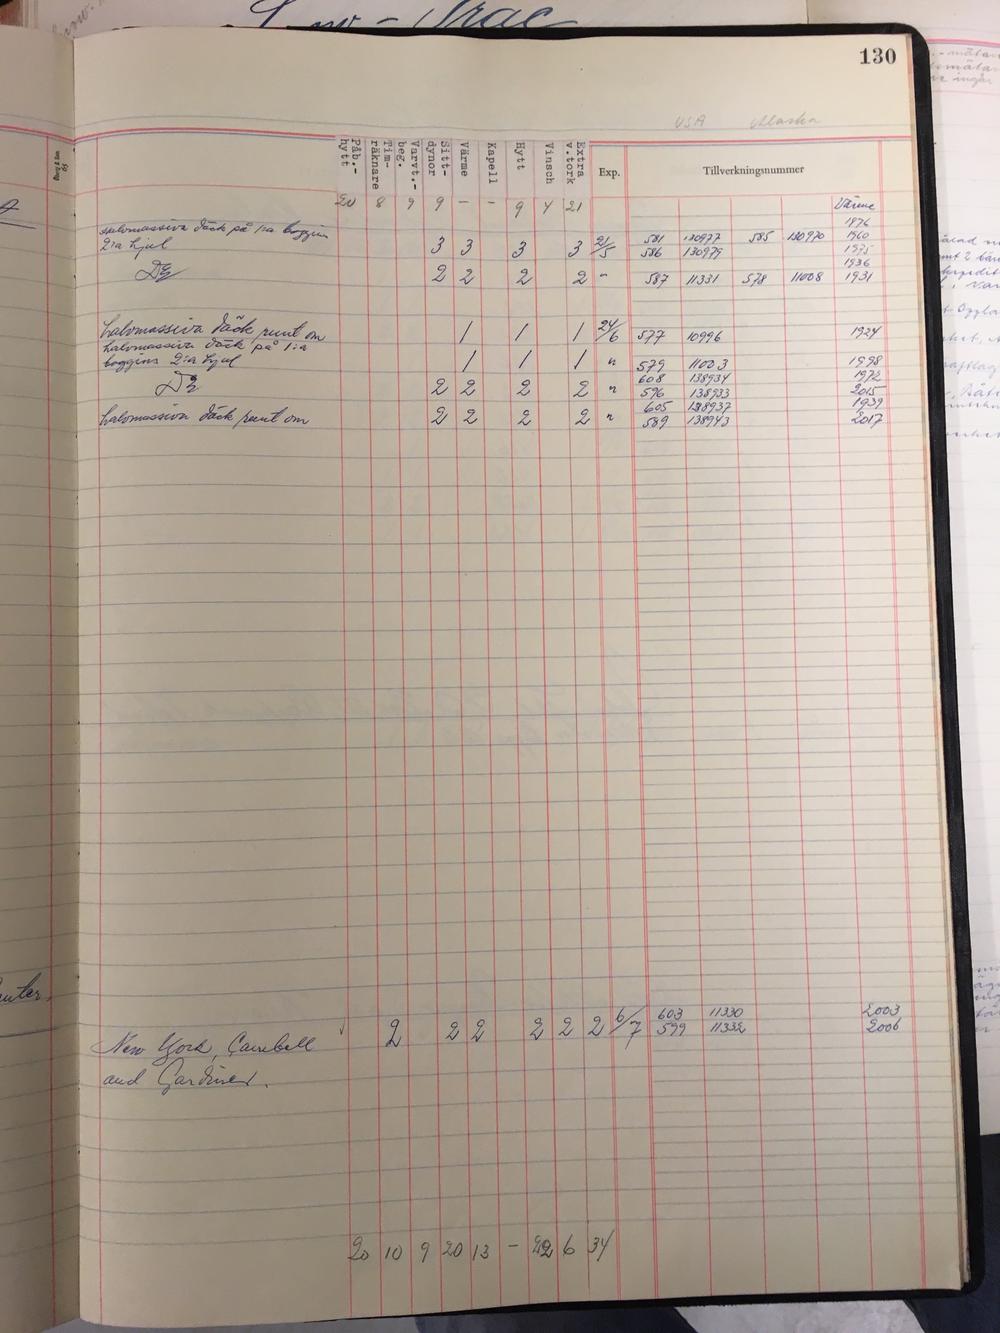 130
USA Alaska
Påb.-hytt Tim-räknare Varvt.-beg. Sitt-dynor Värme Kapell Hytt Vinsch Extra v.tork Exp. Tillverkningsnummer
20 8 9 9 - - 9 4 21 Värme
halvmassiva däck på 1:a boggins 1976
2:a hjul 3 3 3 3 21/5 581 130977 585 130970 1960
586 130979 1975
1936
Do 2 2 2 2 " 587 11331 578 11008 1931
halvmassiva däck runt om 1 1 1 24/6 577 10996 1924
halvmassiva däck på 1:a
boggins 2:a hjul 1 1 1 " 579 11003 1998
608 138934 1972
Do 2 2 2 2 " 596 138933 2015
605 138937 1939
halvmassiva däck runt om 2 2 2 2 " 589 138943 2017
2 2 2 2 2 2 6/7 603 11330 2003
599 11332 2006
New York, Cambell
and Gardiner.
20 10 9 20 13 - 22 6 34